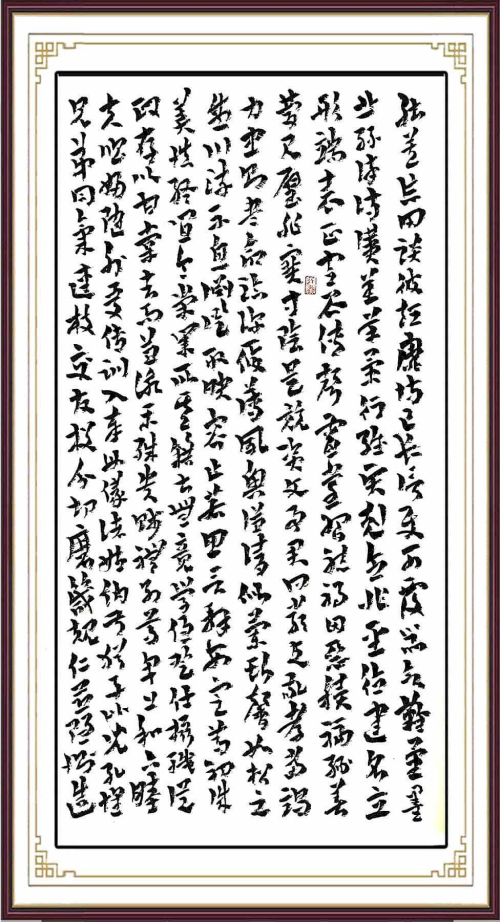 能莫忘罔談彼短靡恃己長信使可覆器欲難量墨
悲絲染詩讚羔羊景行維賢克念作聖德建名立
形端表正空谷傳聲虛堂習聽禍因惡積福緣善
慶尺璧非寶寸陰是競資父事君曰嚴與敬孝當竭
力忠則盡命臨深履薄夙興溫凊似蘭斯馨如松之
盛川流不息淵澄取映容止若思言辭安定篤初誠
美慎終宜令榮業所基籍甚無竟學優登仕攝職從
政存以甘棠去而益詠樂殊貴賤禮別尊卑上和下睦
夫唱婦隨外受傅訓入奉母儀諸姑伯叔猶子比兒孔懷
兄弟同氣連枝交友投分切磨箴規仁慈隱惻造